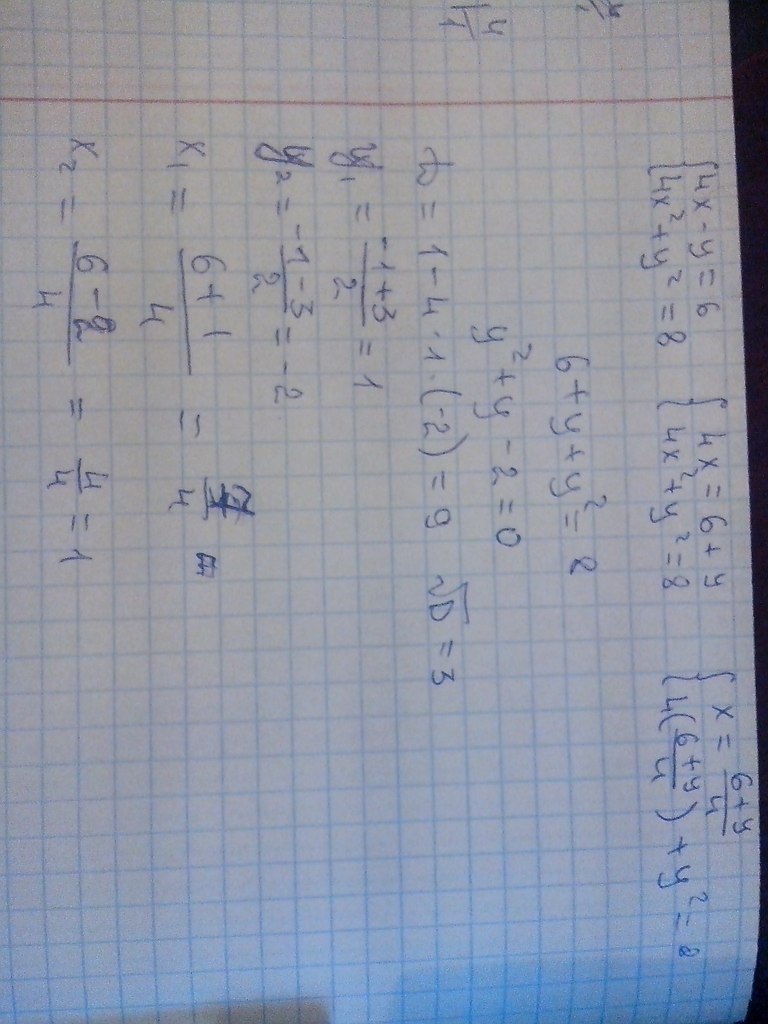 {4x - y = 6 {4x = 6 + y {x = (6+y)/4
{4x² + y² = 8 {4x² + y² = 8 {4((6+y)/4) + y² = 8
6 + y + y² = 8
y² + y - 2 = 0
D = 1 - 4 · 1 · (-2) = 9 √D = 3
y₁ = (-1+3)/2 = 1
y₂ = (-1-3)/2 = -2
x₁ = (6+1)/4 = 7/4
x₂ = (6-2)/4 = 4/4 = 1